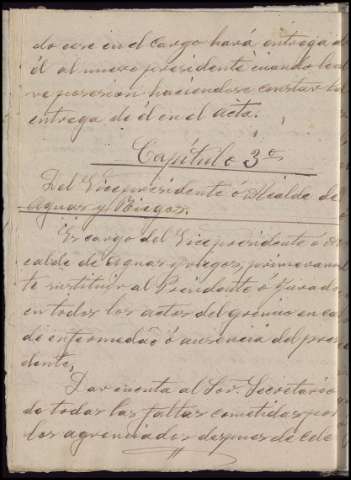 do cese en el cargo hará entrega de
él al nuevo presidente cuando tome
posesion haciendose constar la
entrega de él en el acta.
Capítulo 3º
Del Vicepresidente ó Alcalde de
Aguas y Riegos.
Es cargo del Vicepresidente ó Al
calde de Aguas y riegos, primeramen
te sustituir al Presidente ó Jurado
en todos los actos del gremio en caso
de enfermedad ó ausencia del presi
dente,
Dar cuenta al Sor. Secretario
de todas las faltas cometidas por
los agremiados despues de cele